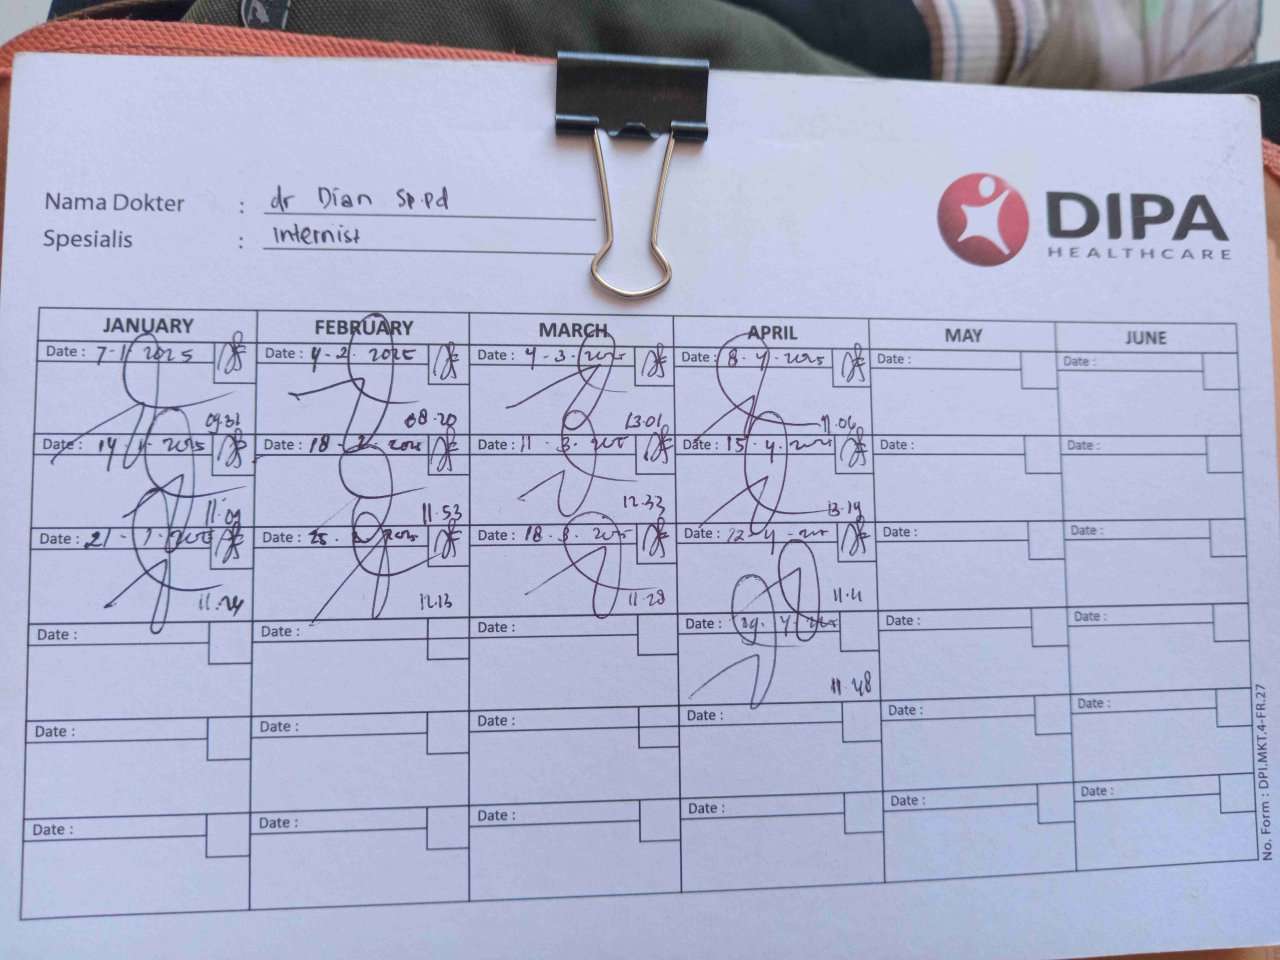 Nama Dokter : dr Dian Sp.pd
Spesialis : Internist
DIPA
HEALTHCARE
JANUARY FEBRUARY MARCH APRIL MAY JUNE
Date : 7-1-2025 Date : 4-2-2025 Date : 4-3-2025 Date : 8-4-2025 Date : Date :
09.32 08.20 13.01 11.06
Date : 14-1-2025 Date : 18-2-2025 Date : 11-3-2025 Date : 15-4-2025 Date : Date :
11.09 11.53 12.33 13.19
Date : 21-1-2025 Date : 25-2-2025 Date : 18-3-2025 Date : 22-4-2025 Date : Date :
11.24 12.13 11.28
Date : Date : Date : Date : 29-4-2025 Date : Date :
11.48
Date : Date : Date : Date : Date : Date :
Date : Date : Date : Date : Date : Date :
No. Form : DPI.MKT.4-FR.27